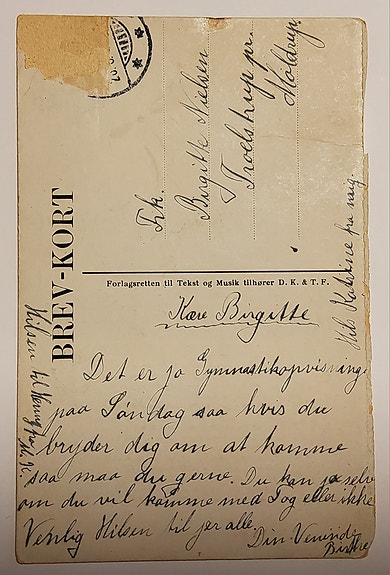 BREV-KORT
Frk.
Birgitte Nielsen
Troelstrup pr.
Møldrup
Forlagsretten til Tekst og Musik tilhører D. K. & T. F.
Kære Birgitte
Det er jo Gymnastikopvisning
paa Søndag saa hvis du
bryder dig om at komme
saa maa du gerne. Du kan jo selv
om du vil komme med Tog eller ikke
Venlig Hilsen til jer alle.
Din Veninde
Birthe
Hils Katrine fra mig.
Hilsen til